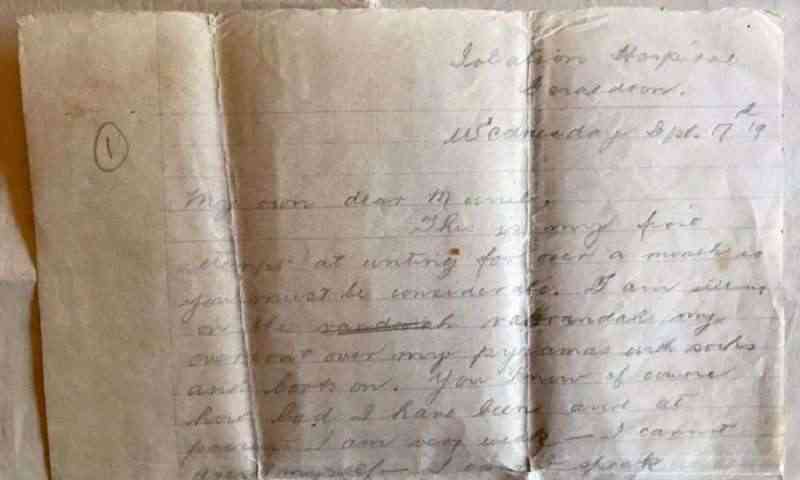 Isolation Hospital
Geraldton.
Wednesday Spt. 17th 19
1
My own dear
This is my first
attempt at writing for over a month so
you must be considerate. I am sitting
on the verandah my
overcoat over my pyjamas with socks
and boots on. You know of course
how bad I have been and at
present I am very weak — I cannot
myself — I cannot speak